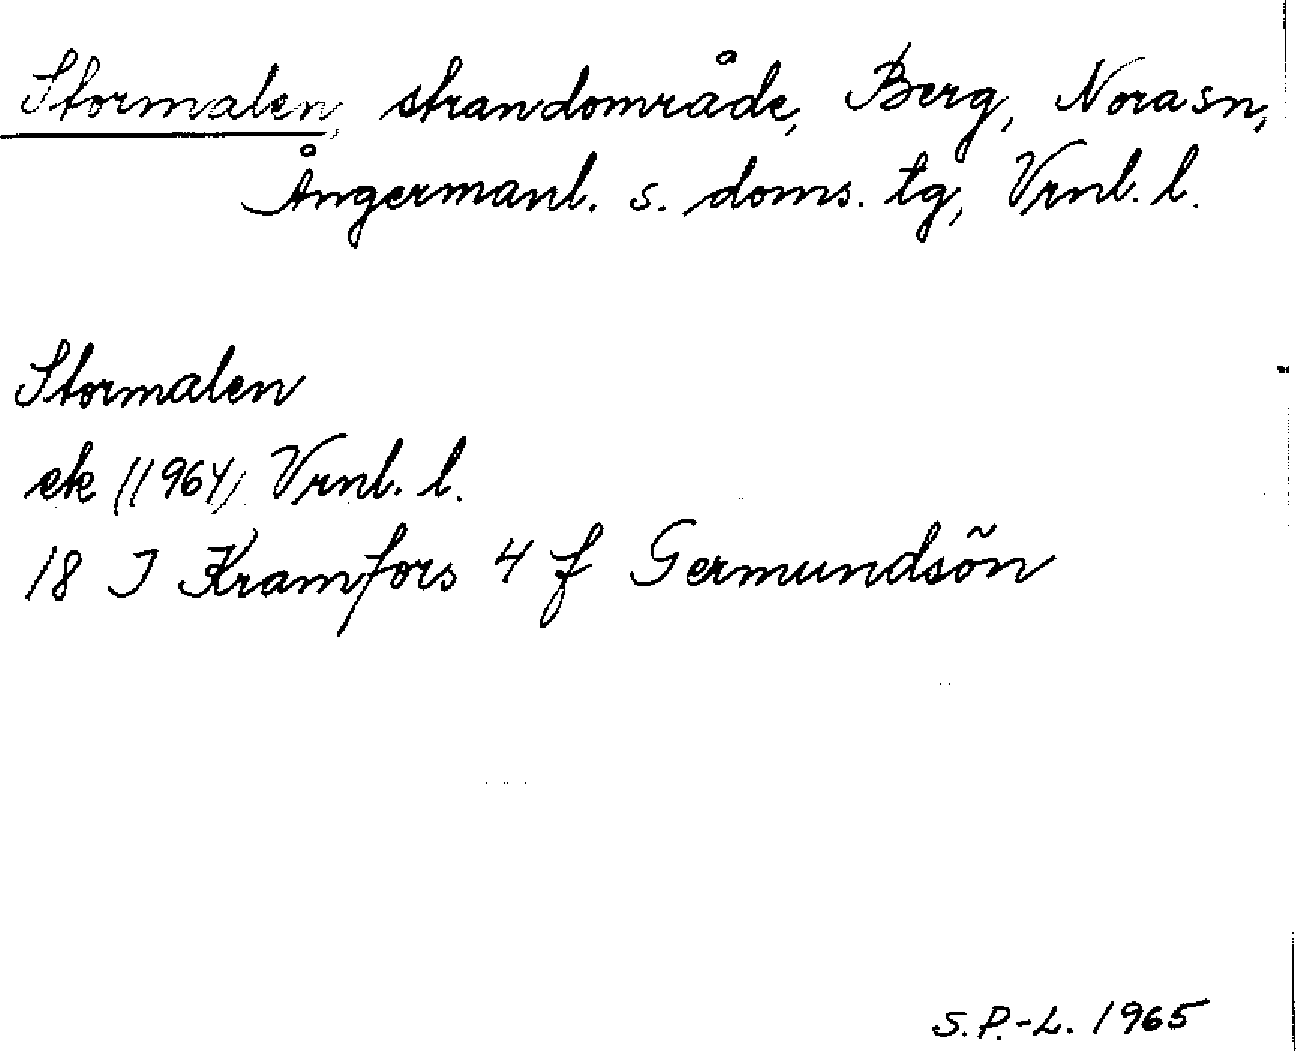 Stormalen, strandområde, Berg, Nora sn,
Ångermanl. s. doms. tg, Vrnl. l.
Stormalen
ek (1964) Vrnl. l.
18 I Kramfors 4 f Germundsön
S. P.-L. 1965